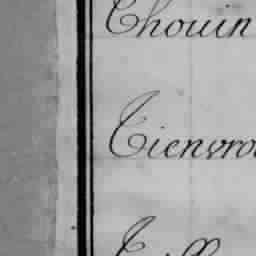 Chouin
Tienvro